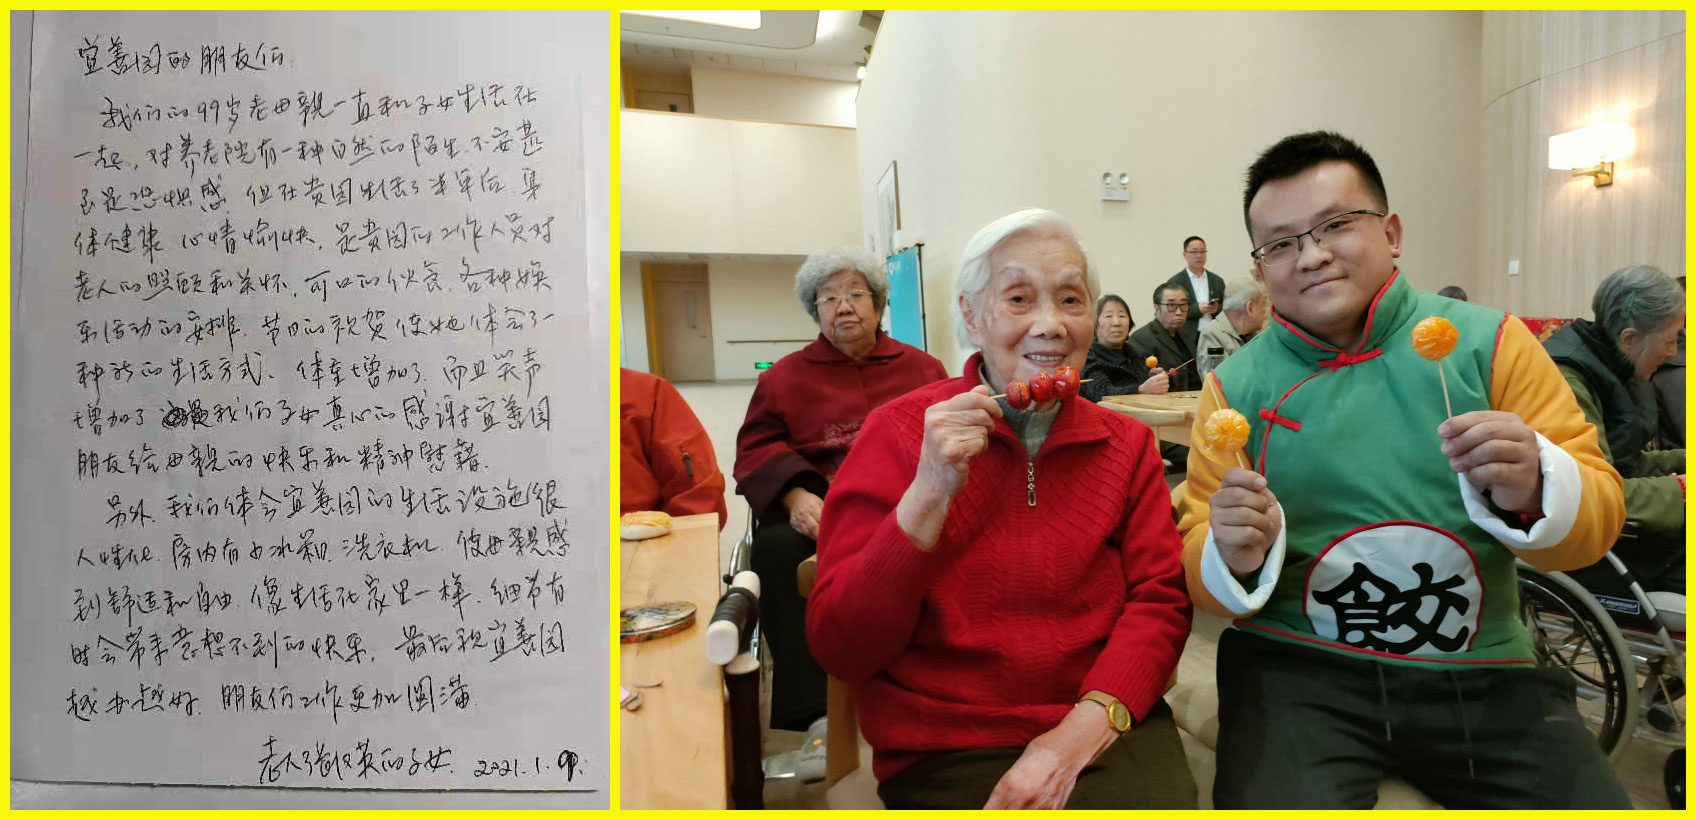 宜善园的朋友们:
我们的99岁老母亲一直和子女生活在
一起,对养老院有一种自然的陌生、不安甚
至是恐惧感。但在贵园生活了半年后,身
体健康、心情愉快,是贵园的工作人员对
老人的照顾和关怀,可口的伙食,各种娱
乐活动的安排,节日的祝贺使她体会了一
种新的生活方式、体重增加了,而且笑声
增加了 我们子女真心的感谢宜善园
朋友给母亲的快乐和精神慰藉。
另外,我们体会宜善园的生活设施很
人性化,房内有小冰箱,洗衣机,使母亲感
到舒适和自由,像生活在家里一样,细节有
时会带来意想不到的快乐,最后祝宜善园
越办越好,朋友们工作更加圆满。
老人张汉英的子女 2021.1.
餃